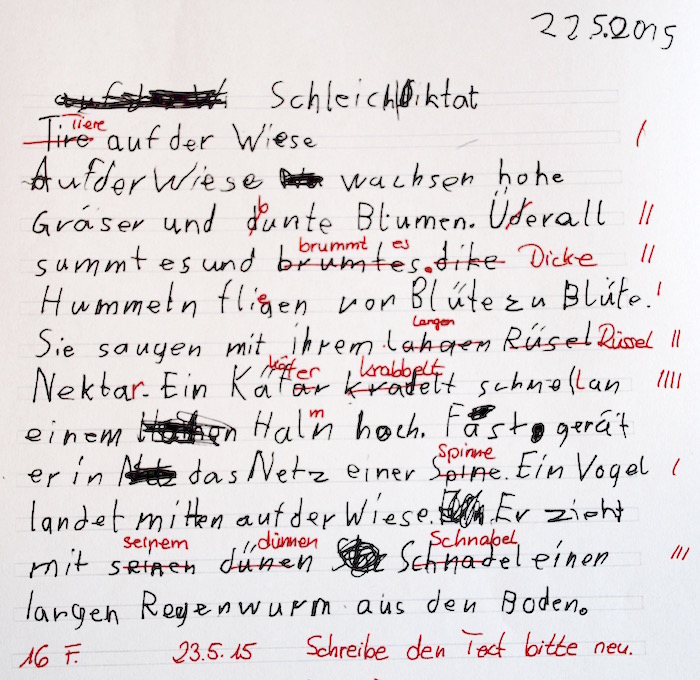 22.5.2015
Schleichdiktat
Tiere
Tire auf der Wiese
Auf der Wiese wachsen hohe
b
Gräser und dunte Blumen. Üderall
brummt es
summt es und brumtes. dike Dicke
Hummeln fliegen von Blüte zu Blüte.
langen
Sie saugen mit ihrem lahgen Rüsel Rüssel
käfer krabbelt
Nektar. Ein Kätar kradelt schnell an
m
einem Haln hoch. Fast gerät
Spinne
er in das Netz einer Spine. Ein Vogel
landet mitten auf der Wiese. Er zieht
seinem dünnen Schnabel
mit seinen dünen Schnadel einen
langen Regenwurm aus den Boden.
16 F. 23.5.15 Schreibe den Text bitte neu.